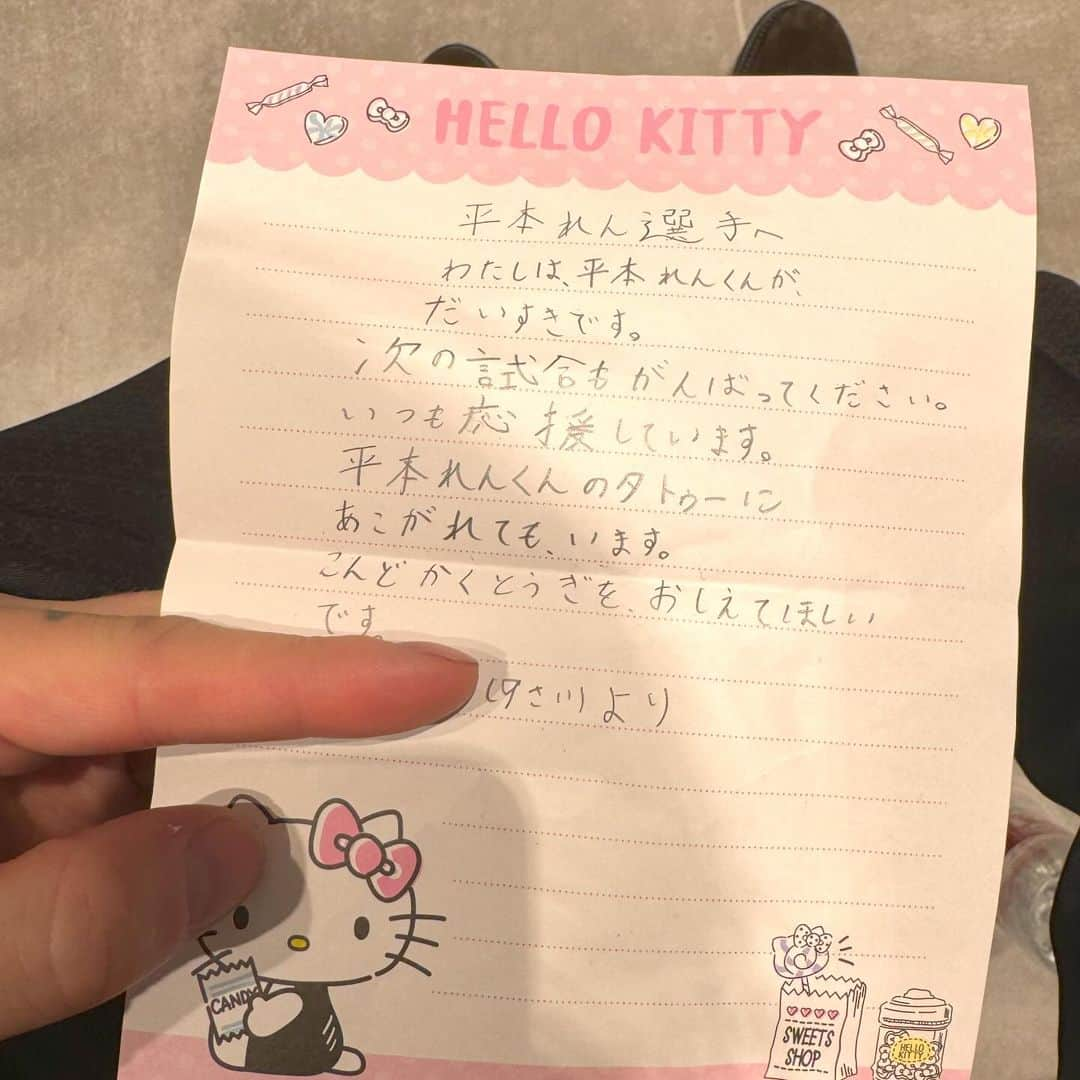 HELLO KITTY
平本れん選手へ
わたしは、平本れんくんが、
だいすきです。
次の試合もがんばってください。
いつも応援しています。
平本れんくんのタトゥーに
あこがれても、います。
こんどかくとうぎを、おしえてほしい
です。
より
CANDY
SWEETS
SHOP
HELLO
KITTY